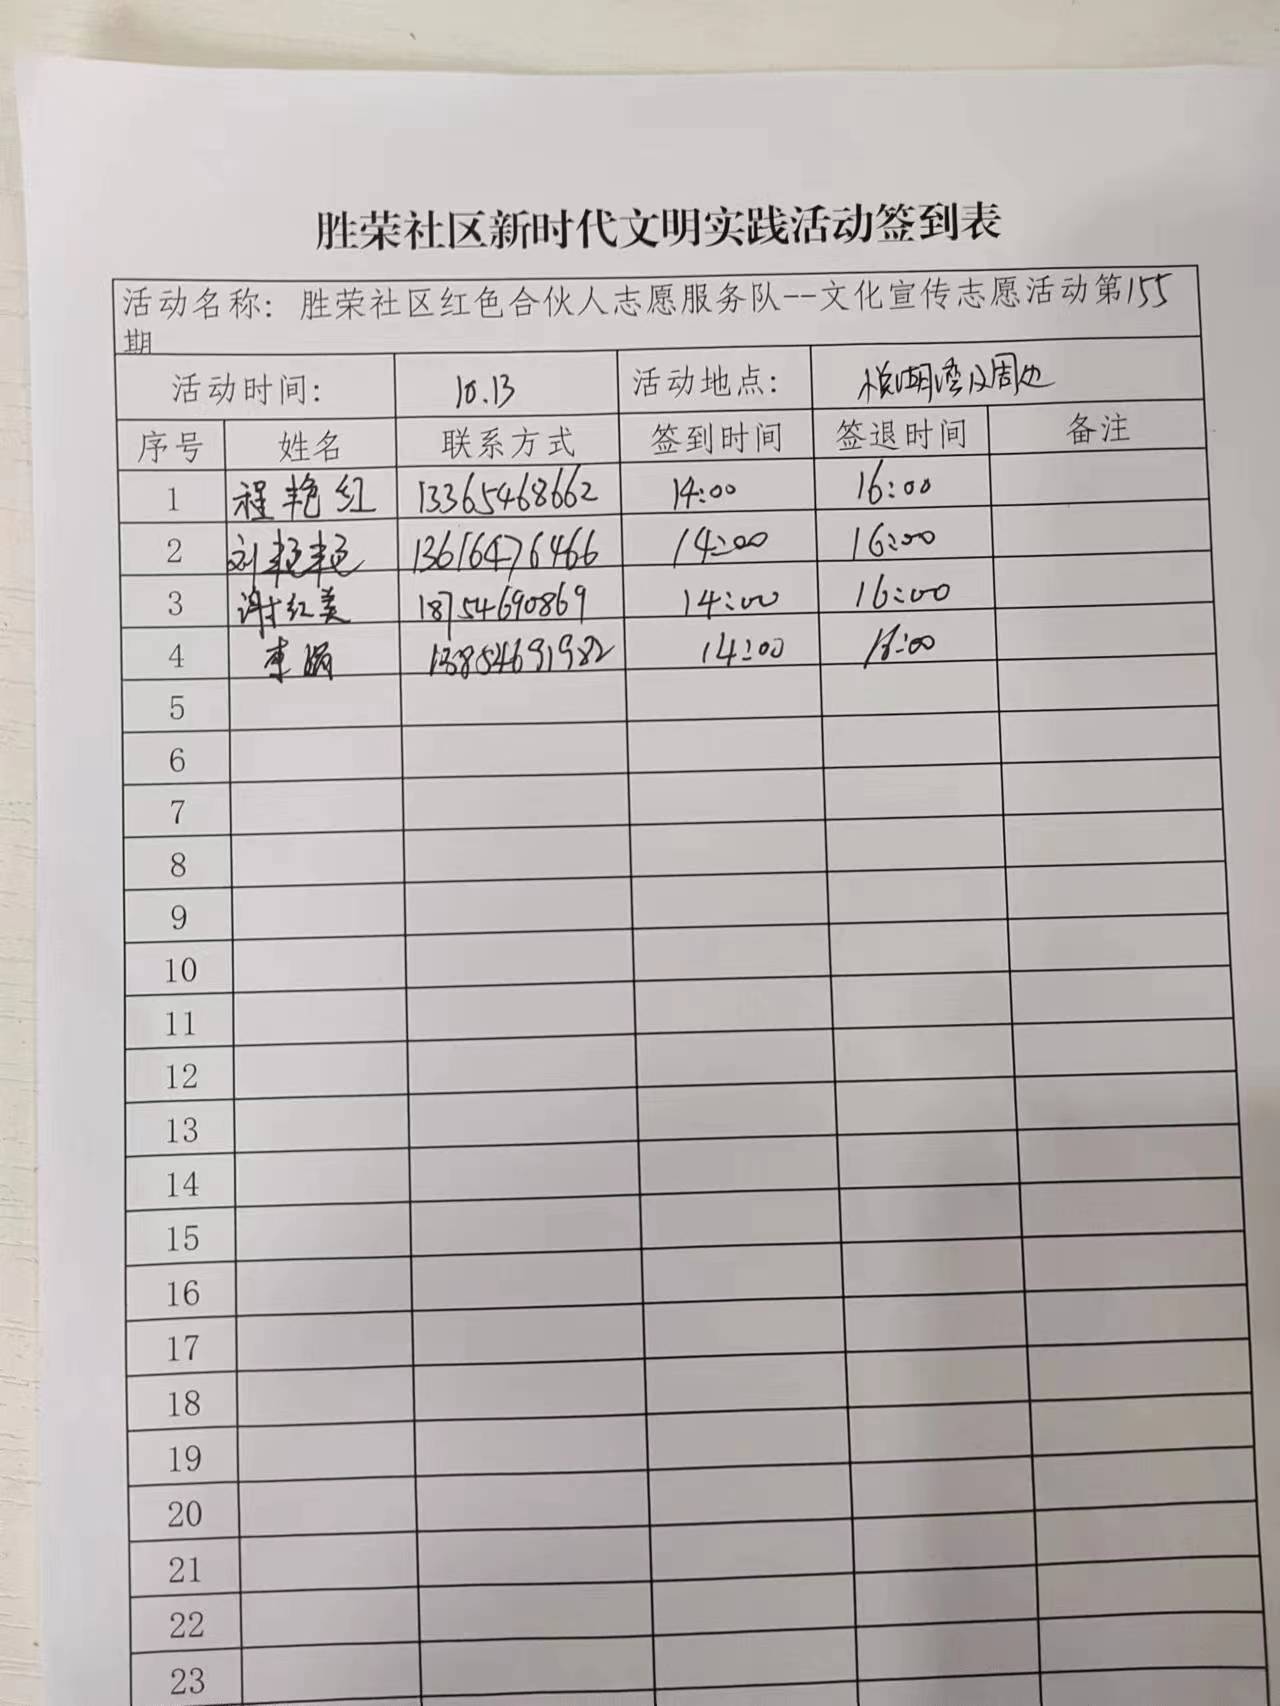 胜荣社区新时代文明实践活动签到表
活动名称：胜荣社区红色合伙人志愿服务队--文化宣传志愿活动第155
期
活动时间： 10.13 活动地点： 悦湖湾及周边
序号 姓名 联系方式 签到时间 签退时间 备注
1 程艳红 13365468662 14:00 16:00
2 刘艳艳 13616476466 14:00 16:00
3 谢红美 18754690869 14:00 16:00
4 13854691982 14:00 16:00
5
6
7
8
9
10
11
12
13
14
15
16
17
18
19
20
21
22
23